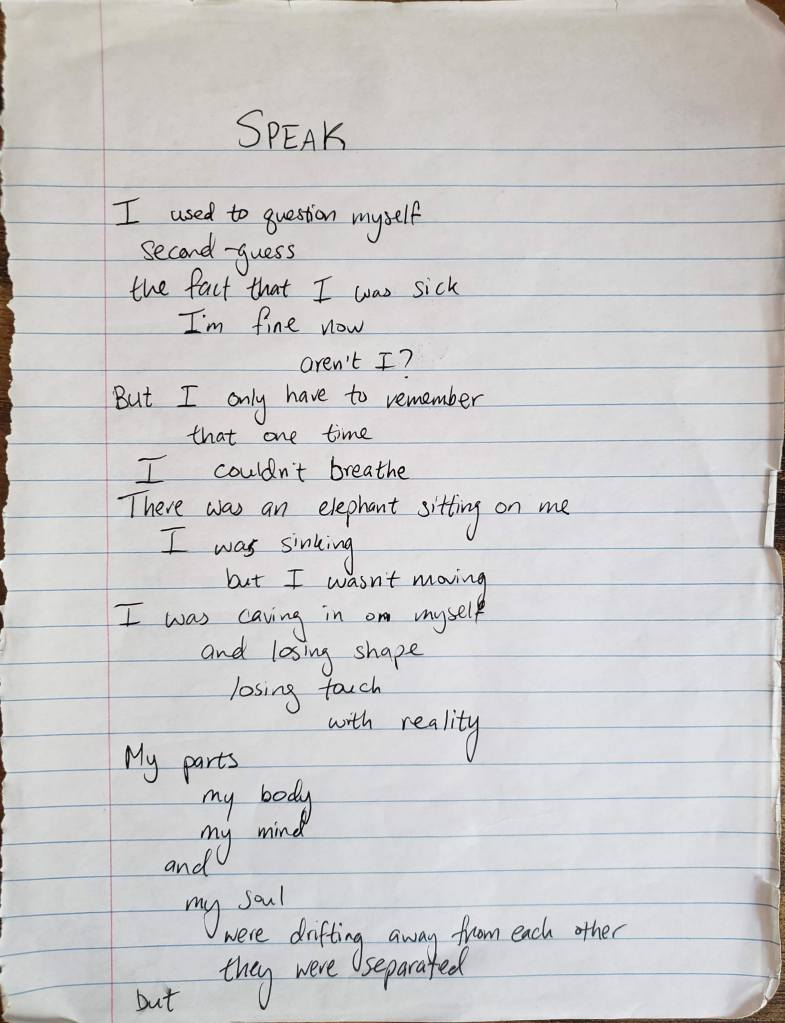 SPEAK
I used to question myself
second-guess
the fact that I was sick
I'm fine now
aren't I?
But I only have to remember
that one time
I couldn't breathe
There was an elephant sitting on me
I was sinking
but I wasn't moving
I was caving in on myself
and losing shape
losing touch
with reality
My parts
my body
my mind
and
my soul
were drifting away from each other
they were separated
but